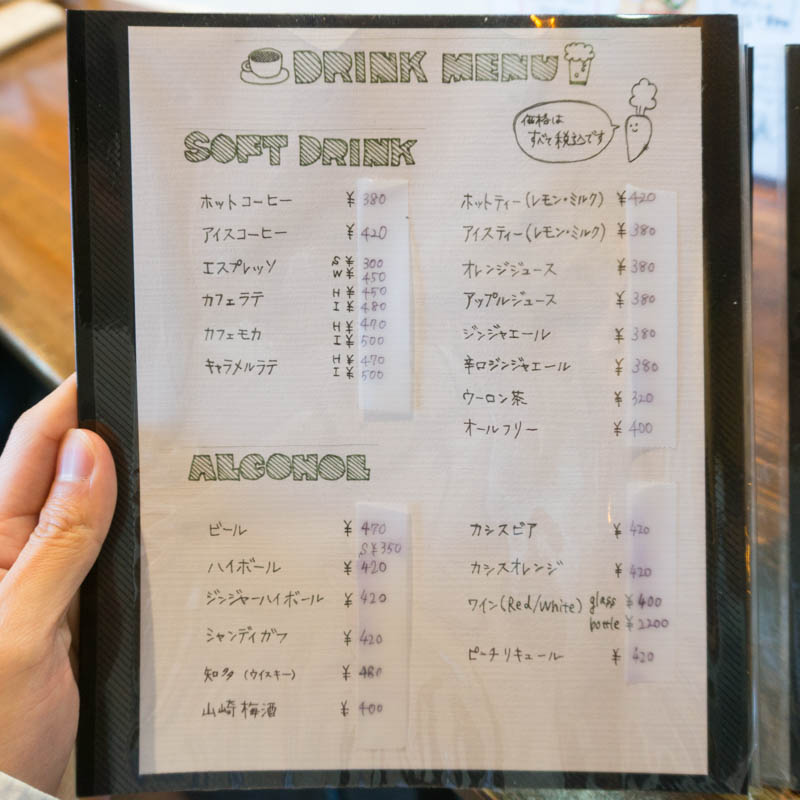 DRINK MENU
価格は
すべて税込です
SOFT DRINK
ホットコーヒー ¥380
アイスコーヒー ¥420
エスプレッソ S ¥300
W ¥450
カフェラテ H ¥450
I ¥480
カフェモカ H ¥470
I ¥500
キャラメルラテ H ¥470
I ¥500
ホットティー(レモン・ミルク) ¥420
アイスティー(レモン・ミルク) ¥380
オレンジジュース ¥380
アップルジュース ¥380
ジンジャエール ¥380
辛口ジンジャエール ¥380
ウーロン茶 ¥320
オールフリー ¥400
ALCOHOL
ビール ¥470
S ¥350
ハイボール ¥420
ジンジャーハイボール ¥420
シャンディガフ ¥420
知多(ウイスキー) ¥480
山崎梅酒 ¥400
カシスビア ¥420
カシスオレンジ ¥420
ワイン(Red/White) glass ¥400
bottle ¥2200
ピーチリキュール ¥420